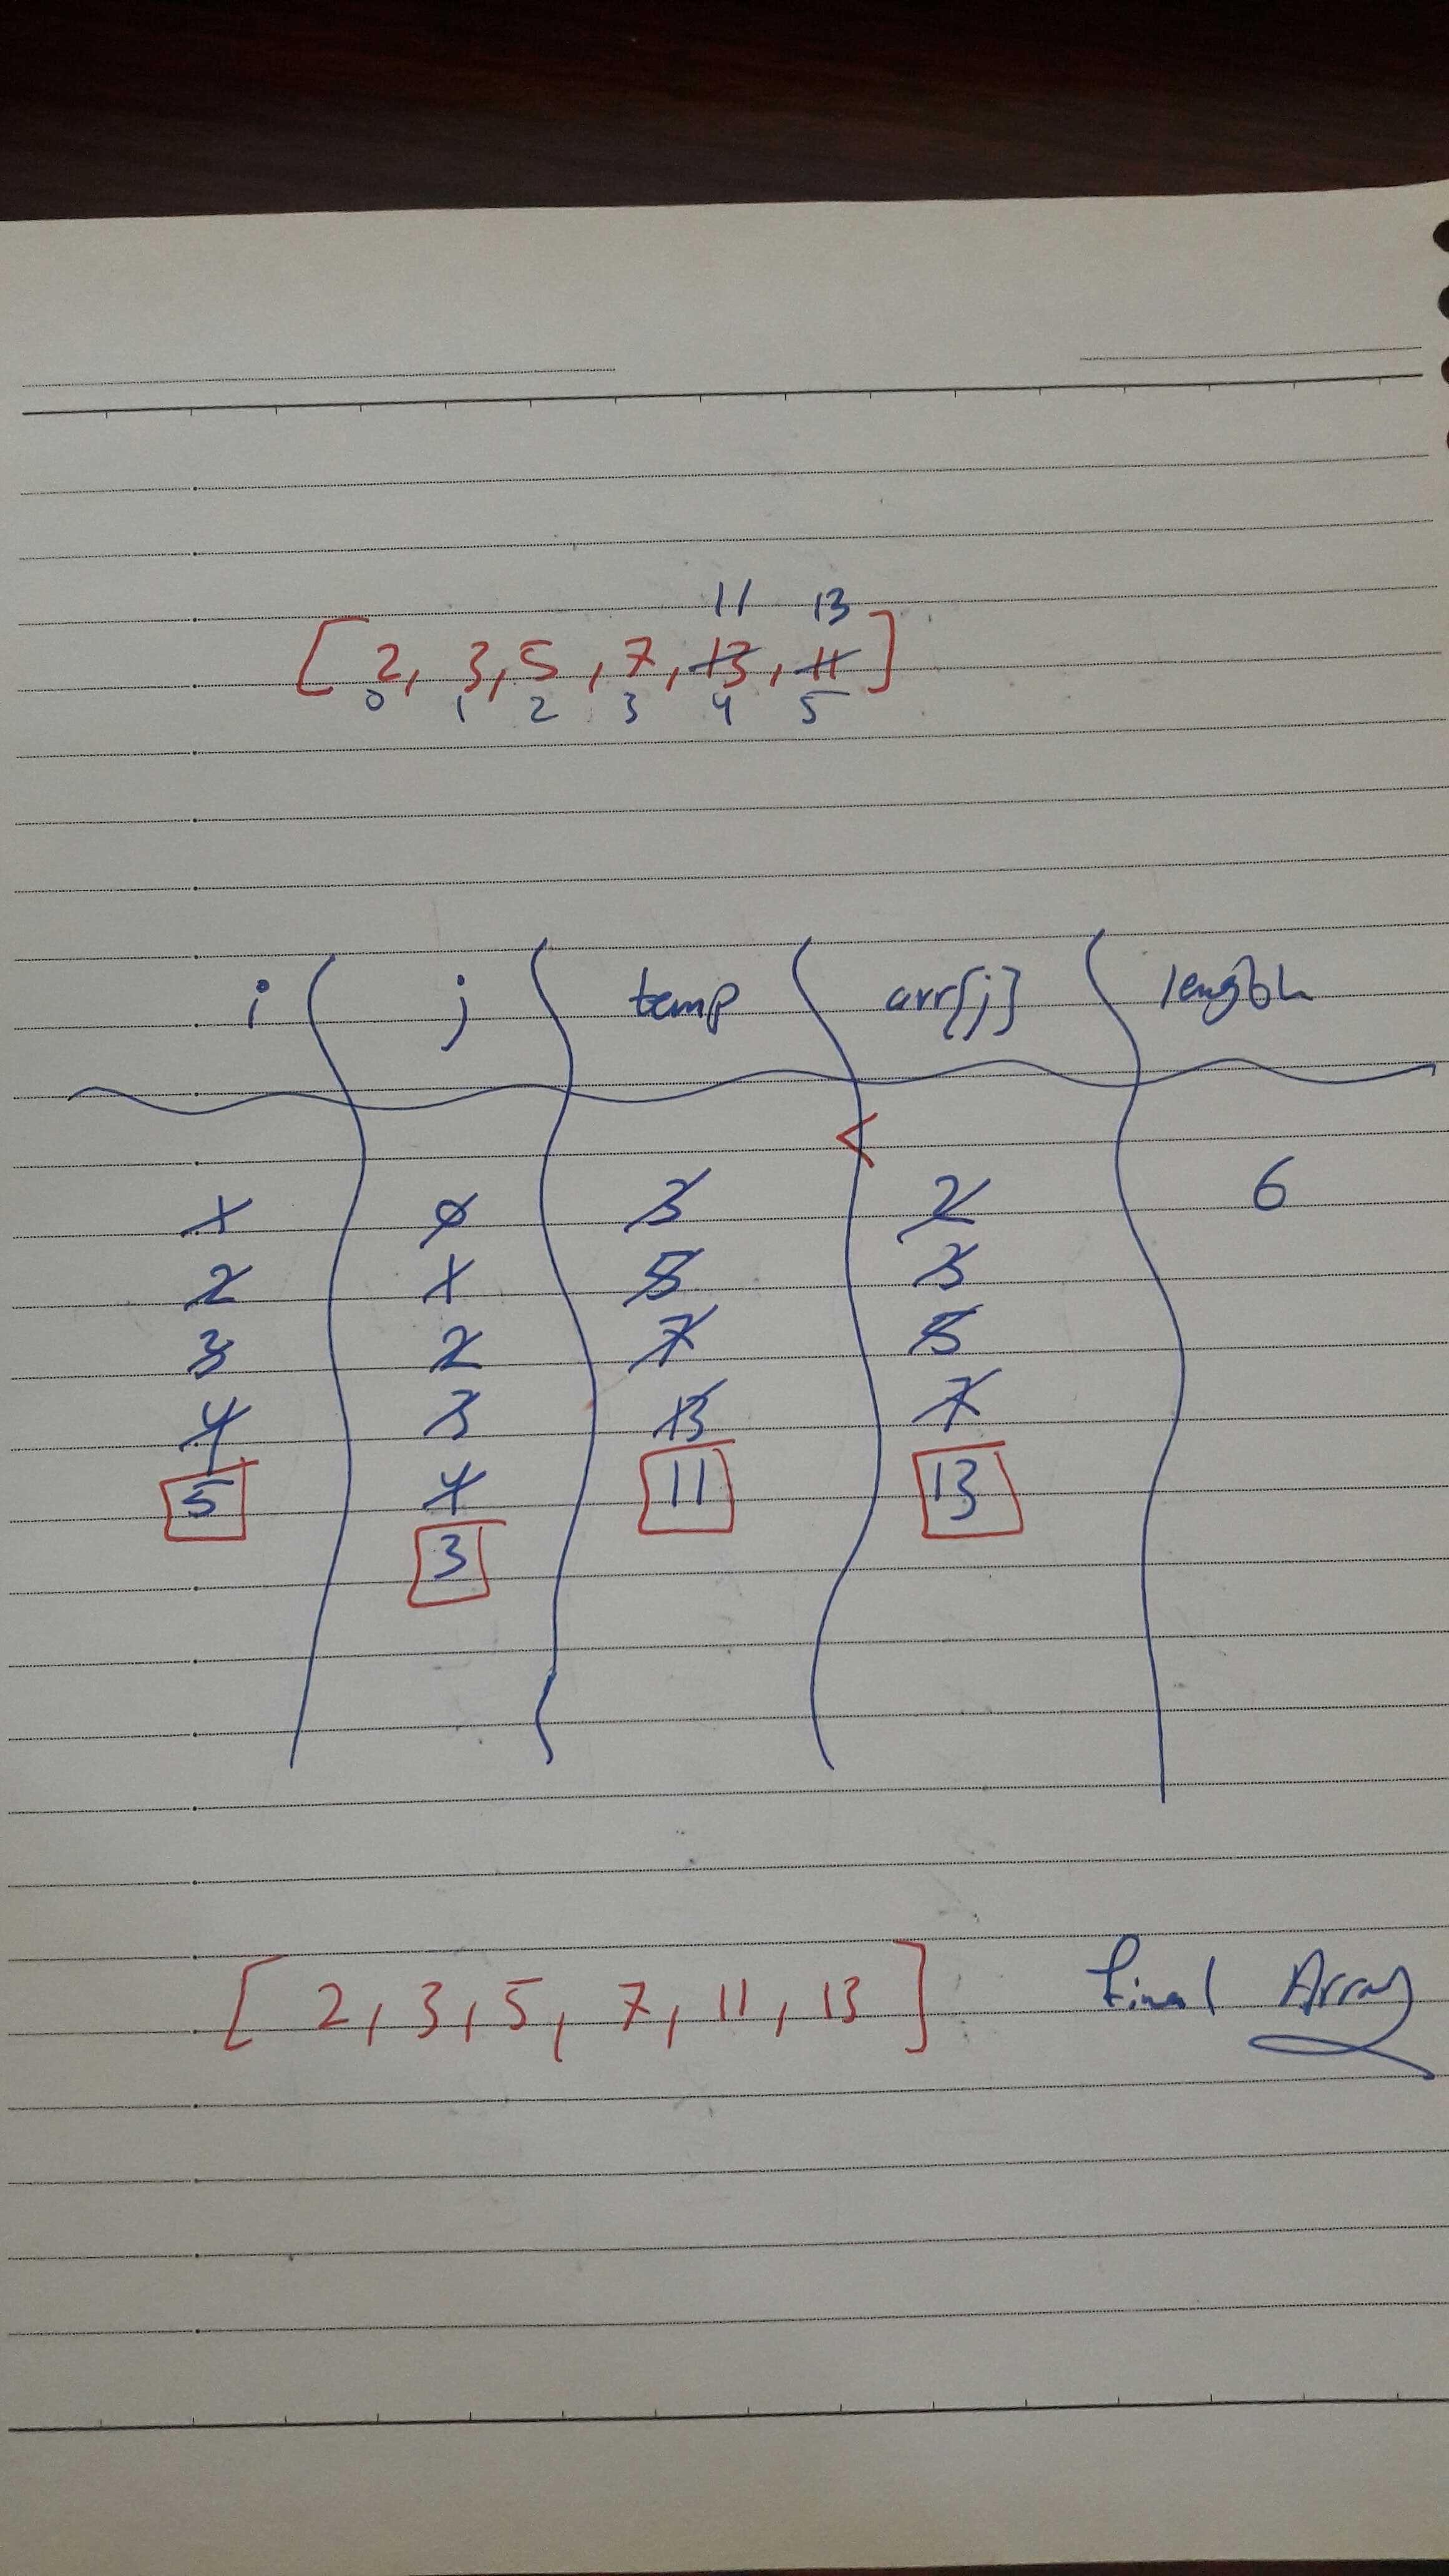 11 13
[ 2, 3, 5, 7, 13, 11 ]
0 1 2 3 4 5
i j temp arr[j] length
<
1 0 3 2 6
2 1 5 3
3 2 7 5
4 3 13 7
5 4 11 13
3
[ 2, 3, 5, 7, 11, 13 ] final Array